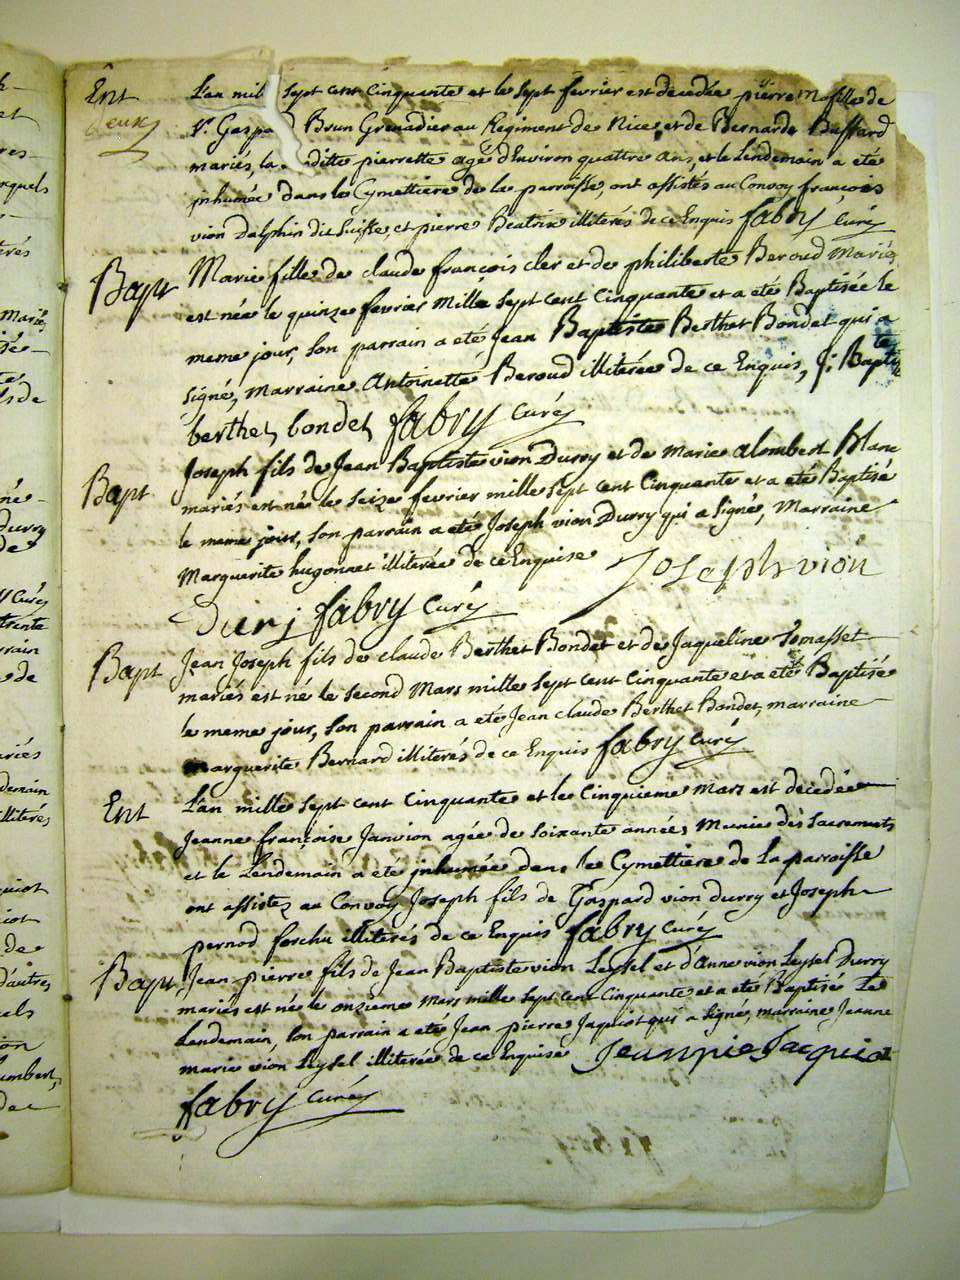 Ent
deux
L'an mil sept cent Cinquante et le sept fevrier est decedée pierre fille de
Sr. Gaspa d Brun Grenadier au Regiment de Nice, et de Bernarde Buffard
mariés, la ditte pierrette agée d'Environ quattre ans, et le Lendemain a eté
inhumée dans le Cymettiere de la parroisse, ont assistés au Convoy françois
vion Dalphin dit Suisse, et pierre Beatrix illiterés de ce Enquis fabry Curé
Bapt
Marie fille de claude françois cler et de philiberte Beroud Mariés
est née le quinze fevrier mille sept cent Cinquante et a eté Baptisée le
meme jour, son parrain a eté Jean Baptiste Berthet Bondet qui a
signé, marraine Antoinette Beroud illiterée de ce Enquis, J: Baptis te
berthet, bondet fabry Curé
Bapt
Joseph fils de Jean Baptiste vion Durry et de Marie alombert Blanc
mariés est né le seize fevrier mille sept cent Cinquante et a eté Baptisé
le meme jour, son parrain a eté Joseph vion Durry qui a signé, Marraine
Marguerite hugonnet illiterée de ce Enquise Joseph vion
Duri fabry Curé
Bapt
Jean Joseph fils de claude Berthet Bondet et de Jaqueline
mariés est né le second Mars mille sept cent Cinquante et a eté Baptisé
le meme jour, son parrain a eté Jean claude Berthet Bondet, marraine
marguerite Bernard illiterés de ce Enquis fabry Curé
Ent
L'an mille sept cent Cinquante et le Cinquieme Mars est decedée
Jeanne françoise Janvion agée de soixante années Munie des sacrements
et le Lendemain a eté inhumée dans le Cymettiere de la parroisse
ont assistez au Convoy Joseph fils de Gaspard vion durry et Joseph
pernod foschu illiterés de ce Enquis fabry Curé
Bapt
Jean pierre fils de Jean Baptiste vion Leysel et d'anne vion Leysel Durry
mariés est né le onzieme Mars mille sept cent Cinquante et a eté Baptisé Le
Lendemain, son parrain a eté Jean pierre Jaquiot qui a signé, marraine Jeanne
marie vion Leysel illiterée de ce Enquise Jeanpie Jacquiot
fabry Curé